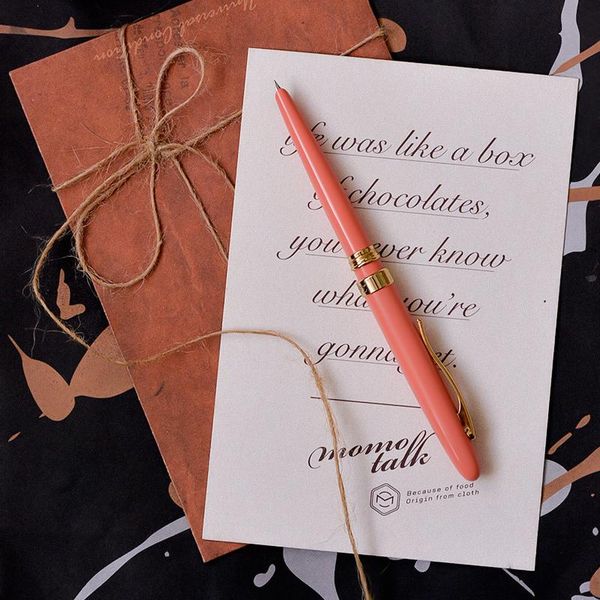 Universal Condition
life was like a box
of chocolates,
you never know
what you're
gonna get.
momo
talk
Because of food
Origin from cloth